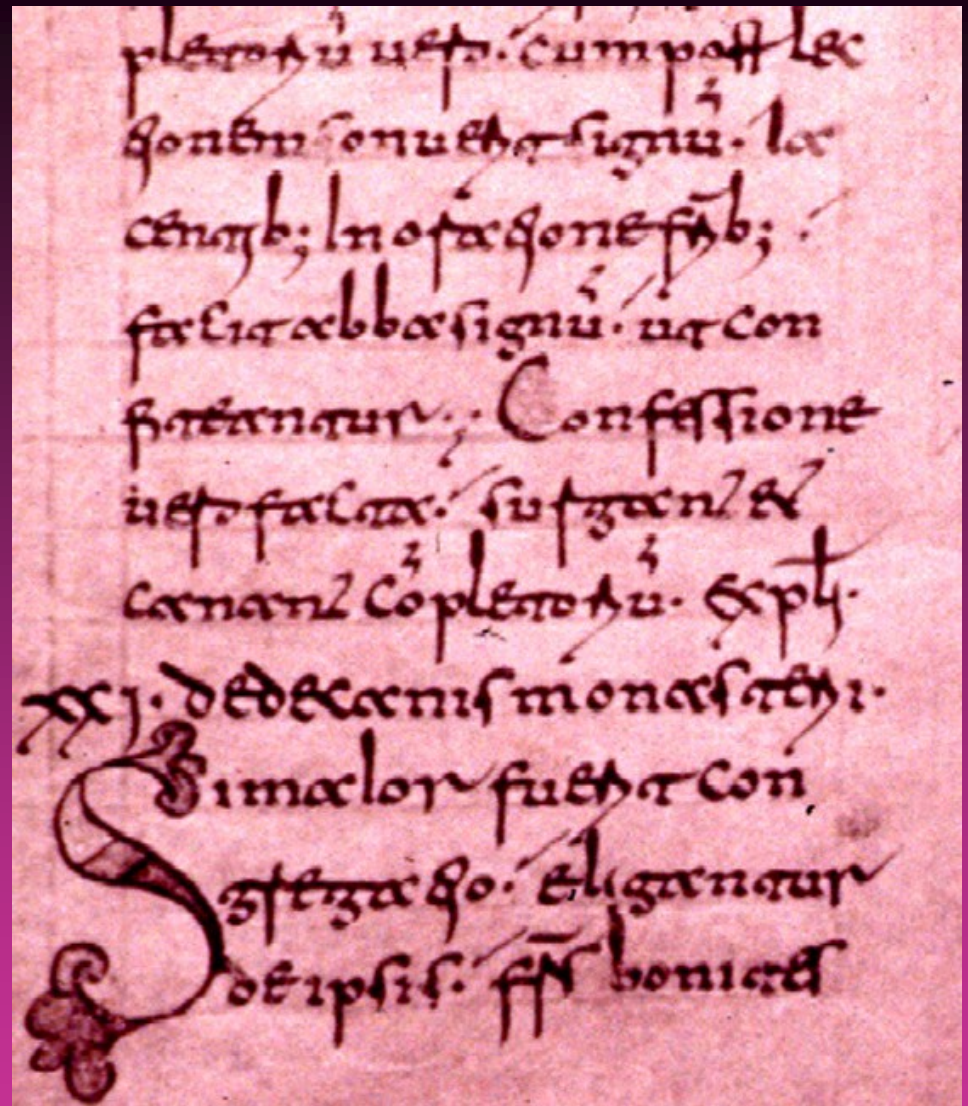 pletoriū uero. cum post lec
tionem sonuerit signū. Ia
centib; In oratione frīb;
faciat abba signū. ut con
fiteantur.; Confessione
uero facta. surgant et
canant cōpletoriū. Expli.
xxi. de decanis monasteri.
Si maior fuerit con
gregatio. eligantur
de ipsis. frs boni tes